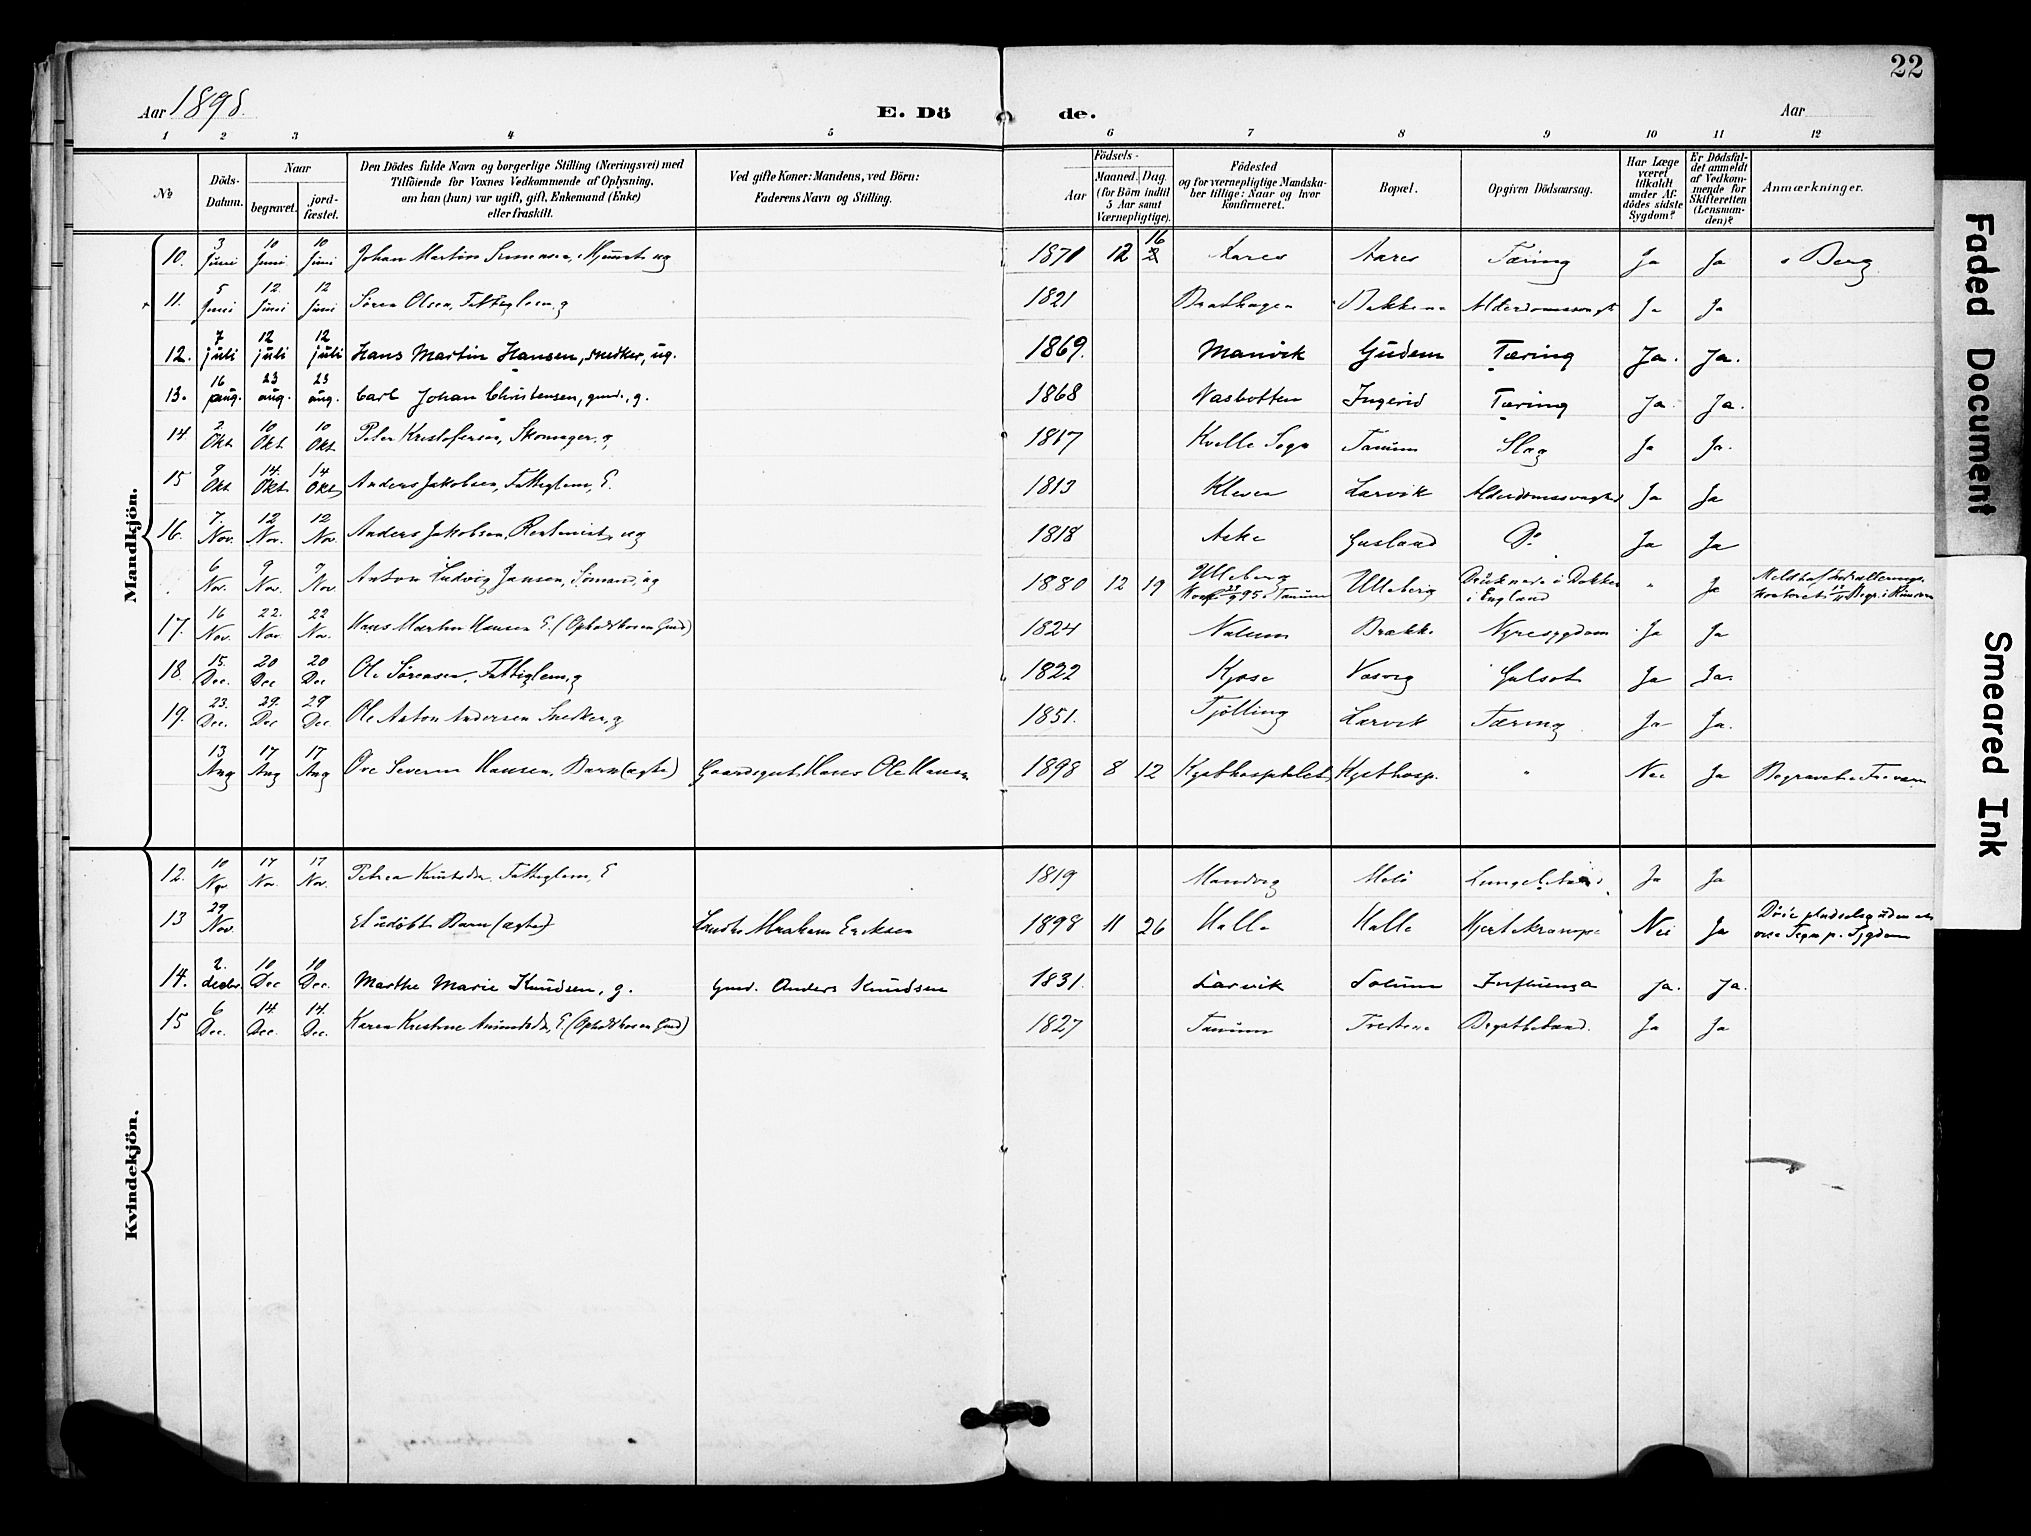 22
Aar 1898.
E. Döde.
Aar
1 2 3 4 5 6 7 8 9 10 11 12
No
Döds-Datum.
Naar
begravet.
jord-fæstet.
Den Dödes fulde Navn og borgerlige Stilling (Næringsvei) med
Tilföiende for Voxnes Vedkommende af Oplysning,
om han (hun) var ugift, gift, Enkemand (Enke)
eller fraskilt.
Ved gifte Koner: Mandens, ved Börn:
Faderens Navn og Stilling.
Födsels-
Aar
Maaned. Dag.
(for Börn indtil
5 Aar samt
Værnepligtige).
Födested
og for værnepligtige Mandska-
ber tillige: Naar og hvor
konfirmeret.
Bopæl.
Opgiven Dödsaarsag.
Har Læge
været
tilkaldt
under Af-
dödes sidste
Sygdom?
Er Dödsfal-
det anmeldt
af Vedkom-
mende for
Skifteretten
(Lensman-
den)?
Anmærkninger.
Mandkjön.
10. 3 Juni 10 Juni 10 Juni Johan Martin 1870 12 16 Aares Aares Tæring Ja Ja Berg
11. 5 Juni 12 Juni 12 Juni Sören Olsen, Fattiglem, g 1821 Bakkene Alderdomssvagh. Ja Ja
12. 7 juli 12 juli 12 juli Hans Martin Hansen, snedker, ug. 1869. Manvik Gudem Tæring Ja. Ja.
13. 16 aug. 23 aug. 23 aug. Carl Johan Christensen, gmd., g. 1868 Vasbotten Ingerid Tæring Ja. Ja.
14. 2. Okt 10 Okt 10 Okt Peter Kristofersen, Skomager, g, 1817 Kvelle Sogn Tanum Slag Ja Ja.
15 9 Okt 14. Okt 14 Okt Anders Jakobsen, Fattiglem, E. 1813 Kleven Larvik Alderdomssvaghed Ja Ja
16. 7. Nov. 12 Nov. 12 Nov. Anders Jakobsen, ug 1818 Aske Gusland Do Ja Ja
6 Nov. 9 Nov. 9 Nov. Anton Ludvig Jansen, Sömand, ug 1880 12 19 Ulleberg Konf. 29/9 95 i Tanum Ulleberg Druknede i Dokken i England " Ja
17. 16 Nov. 22. Nov. 22 Nov. Hans Martin Hansen E. (Ophold hos en Gmd) 1824 Nalum Brække Nyresygdom Ja Ja
18. 15. Dec. 20 Dec 20 Dec Ole Sörensen, Fattiglem, g 1822 Kjose Vasvig Gulsot Ja Ja.
19. 23. Dec. 29. Dec 29 Dec Ole Anton Andersen Snedker, g 1851. Tjölling Larvik Tæring Ja Ja.
13 Aug 17 Aug 17 Aug Ove Severin Hansen, Barn (ægte) Gaardsgut Hans Ole Hansen 1898 8 12 Kysthospitalet Kysthosp. " Nei Ja Begravet i
Kvindekjön.
12. 10 Nov 17 Nov. 17 Nov. Petrea Knutsdtr. Fattiglem, E 1819 Manvig Melö Ja Ja
13 29 Nov. Et udöbt Barn (ægte) Abraham Eriksen 1898 11 26 Halle Halle Hjertekrampe Nei Ja Döde pludselig uden at vise Tegn p. Sygdom
14. 2. decbr. 10 Dec 10 Dec. Marthe Marie Knudsen, g. gmd. Anders Knudsen 1831. Larvik Solum Influenza Ja. Ja.
15 6 Dec. 14 Dec. 14. Dec. Karen Kristine E. (Ophold hos en Gmd) 1827 Tanum Ja Ja
Faded Document
Smeared Ink